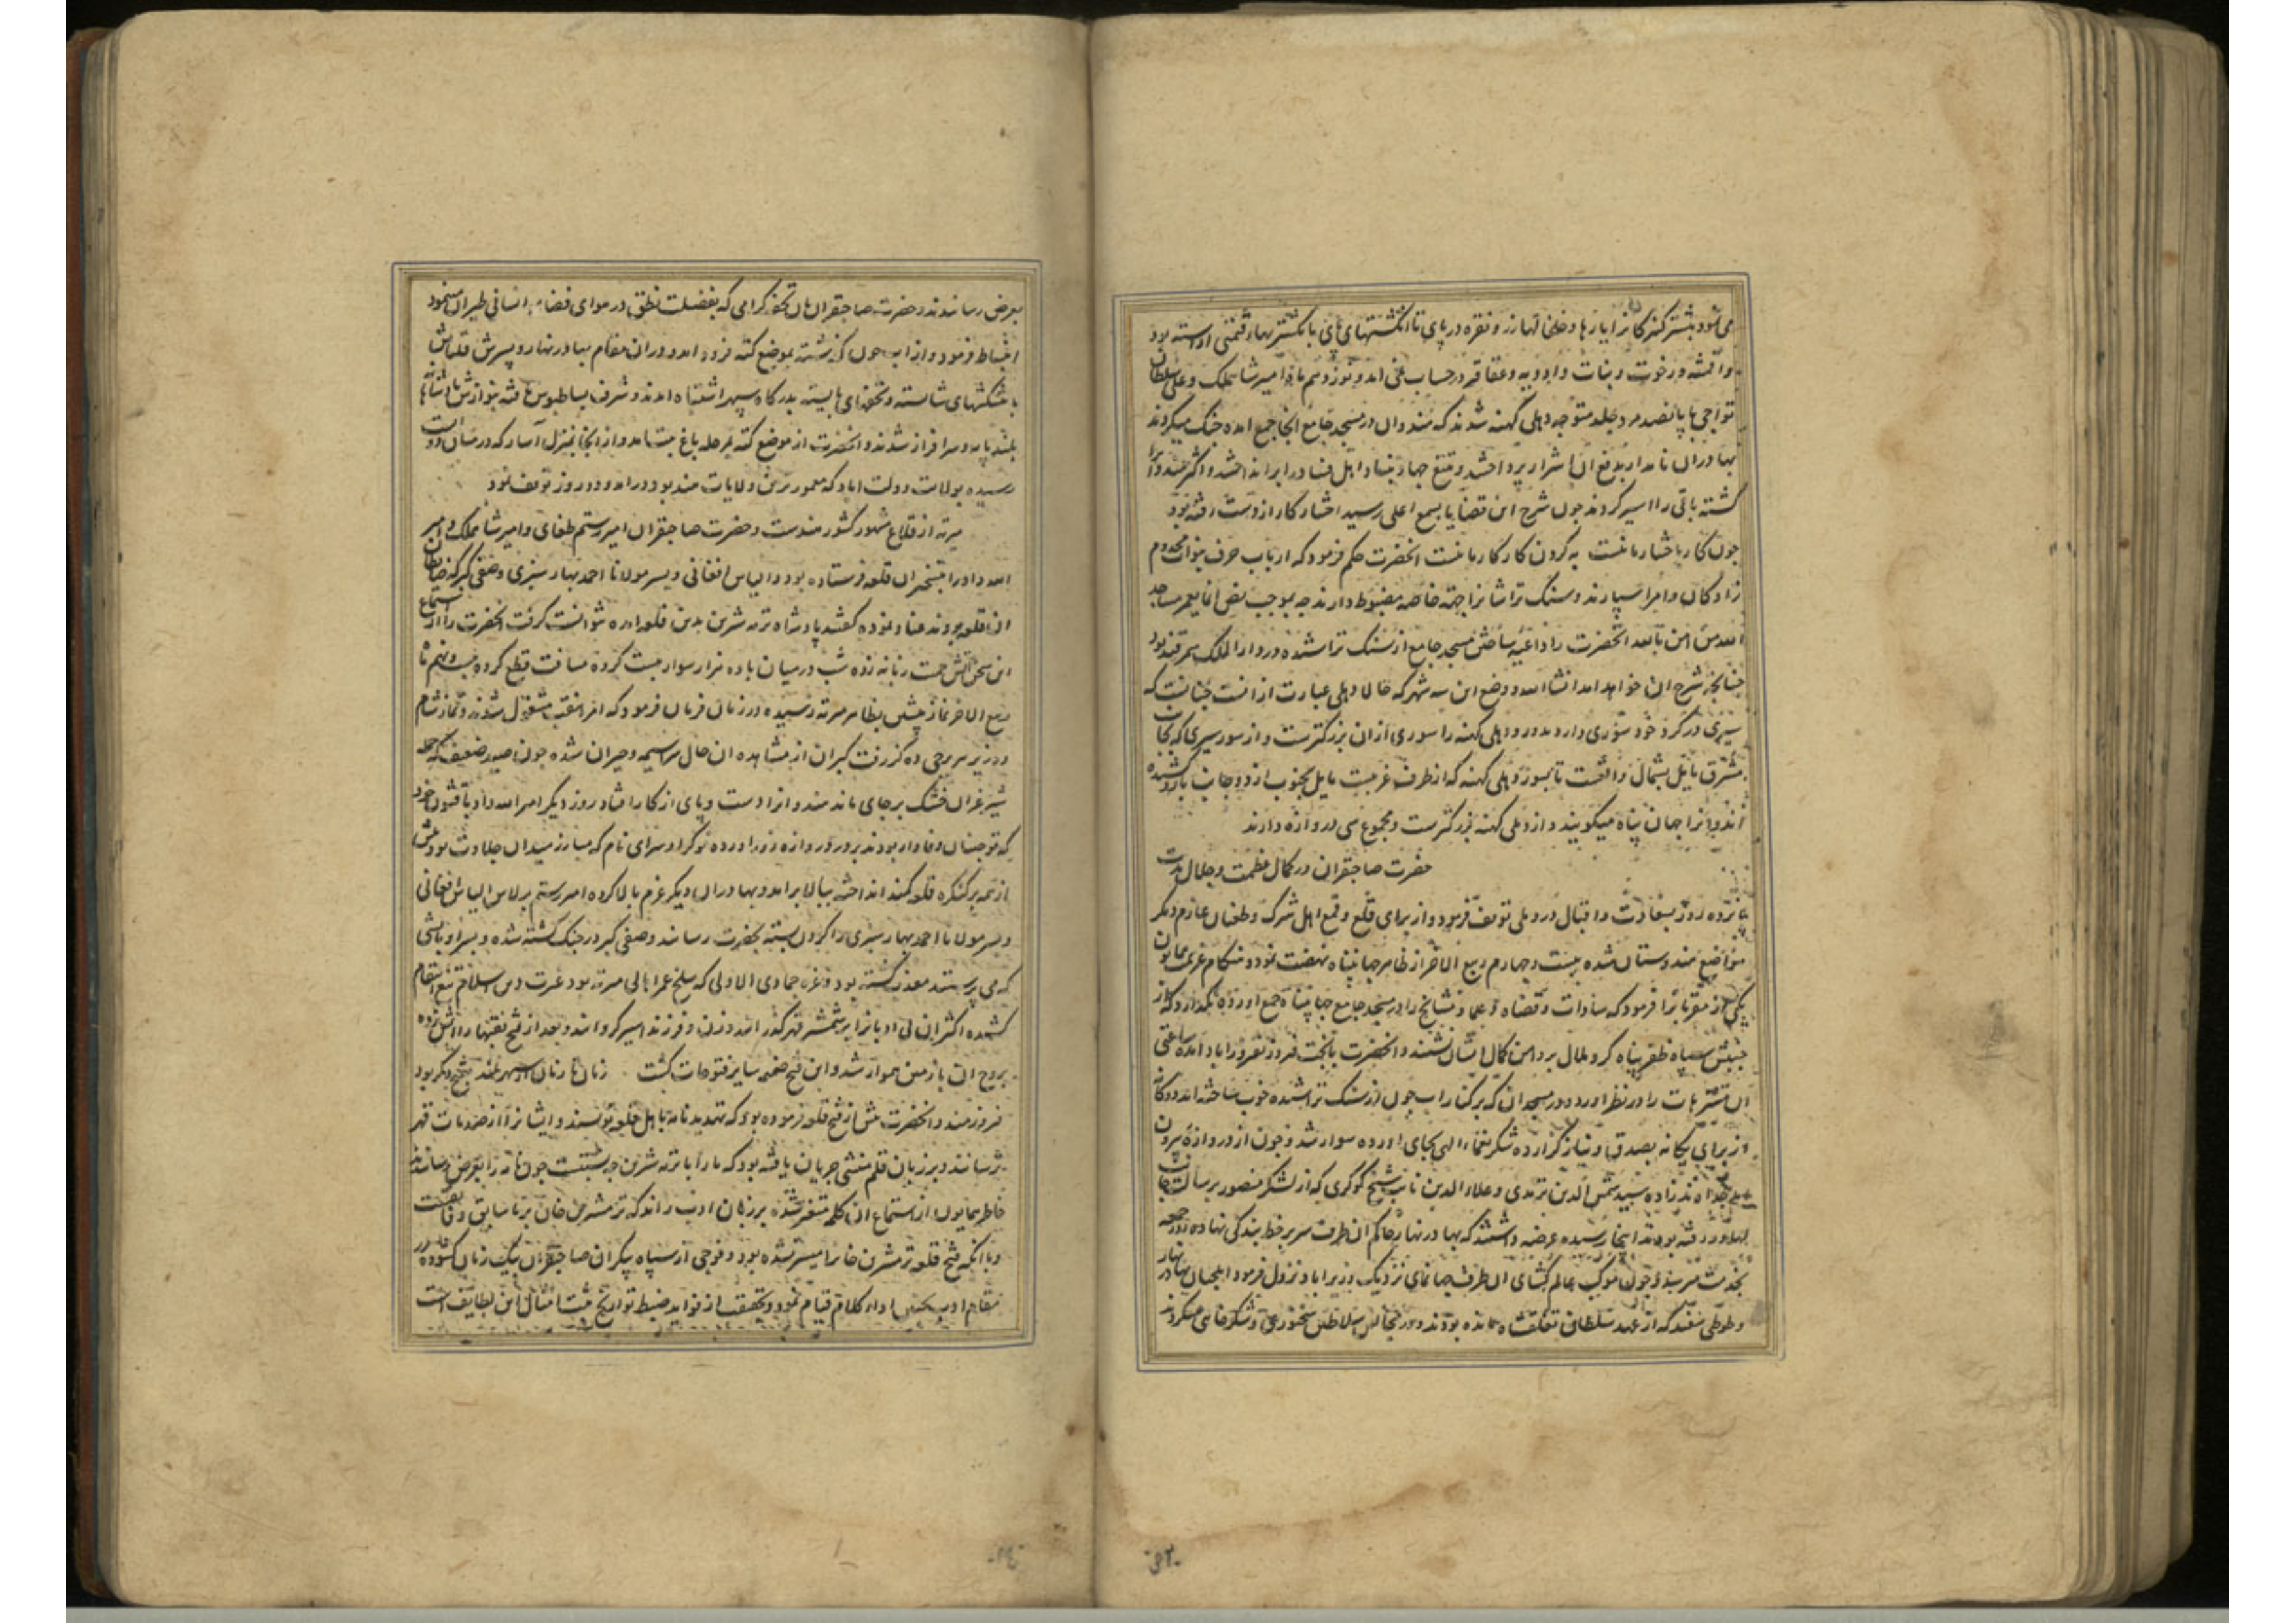 می شود بیشتر کنیزکانرا یارها و خلخالها زر و نقره در پای تا انگشتهای پای با نگشتر بهاء قیمتی اراسته بود
و اقمشه و رخوت و بنات و ادویه و عقاقیر در حساب نمی امد و نوزدهم ماه امیر شاهملک و علی سلطان
تواجی با پانصد مرد جلد متوجه دهلی کهنه شدند که هندوان در مسجد جامع انجا جمع امده جنک میکردند
بهادران نامدار بدفع ان اشرار پرداختند و تیغ جهاد بنیاد اهل فساد را براند اختند و اکثر
کشته باقی را اسیر کردند چون شرح این قضایا بسمع اعلی رسید اختیار کار از دست رفته بود
چون کار باختیار ما نیست به کردن کار کار ما نیست انحضرت حکم فرمود که ارباب حرف بنوا
زادکان و امرا سپارند و سنک تراشانرا جهة خاصه مضبوط دارند چه بموجب نص انما یعمر مساجد
الله من امن بالله انحضرت را داعیه ساختن مسجد جامع از سنک تراشیده در دار الملک سمرقند بود
چنانچه شرح ان خواهد امد انشا الله و وضع این سه شهر که حالا دهلی عبارت از انست چنانست که
سیری در کرد خود سوری دارد مدور و دهلی کهنه را سوری از ان بزرکترست و از سور سیری که بجانب
مشرق مایل بشمال واقعست تا بسور دهلی کهنه که از طرف غربیت مایل بجنوب از دو جانب بارو کشیده
اند و انرا جهان پناه میکویند و از دهلی کهنه بزرکترست و مجموع سی دروازه دارند
حضرت صاحبقران در کمال عظمت و جلال مدت
پانزده روز بسعادت و اقبال در دهلی توقف فرمود و از برای قلع و قمع اهل شرک و طغیان عازم دیکر
مواضع هندوستان شده بیست و چهارم ربیع الاخر از ظاهر جهانپناه نهضت نمود و هنکام عزیمت همایون
یکی از مقربانرا فرمود که سادات و قضاه و علما و مشایخ را در مسجد جامع جهانپناه جمع اورده نکهدارد که از
جنبش سپاه ظفر پناه کرد ملال بر دامن کمال ایشان ننشیند و انحضرت بابخت فیروز بفیروزاباد امده ساعتی
ان متنزهات را در نظر اورد و در مسجد ان که بر کنار اب جون از سنک تراشیده خوب ساخته اند دوکانه
از برای یکانه بصدق و نیاز کزارده شکر نعماء الهی بجای اورده سوار شد و چون از دروازه بیرون
خداوندزاده سید شمس الدین ترمدی و علاء الدین نایب شیخ کوکری که از لشکر منصور برسالت بجانب
بهادر رفته بودند انجا رسیده عرضه داشتند که بهادر نهار حاکم ان طرف سر بر خط بندکی نهاده روز جمعه
بخدمت میرسد و چون موکب عالم کشای ان طرف جهانمای نزدیک وزیراباد نزول فرمود ایلچیان بهادر
و طوطی سفید که از عهد سلطان تغلقشاه مانده بودند و در مجالس سلاطین سخنوری و شکرخایی میکردند
بعرض رسانیدند و حضرت صاحبقران بان تحفه کرامی که بفضیلت نطق در هوای فضاء انسانی طیران مینمود
انبساط فرمود و از اب جون کذشته بموضع کته فرود امد و در ان مقام بهادر نهار و پسرش قلناش
با پیشکشهای شایسته و تحفهای بایسته بدرکاه سپهر اشتباه امدند و شرف بساطبوس یافته بنوازش پادشاهانه
بلند پایه و سرافراز شدند و انحضرت از موضع کته بمرحله باغ پت امد و از انجا بمنزل آسار که در میان دو اب است
رسیده بولایت دولت اباد که معمورترین ولایات هند بود در امد و دو روز توقف نمود
میرته از قلاع مشهور کشور هندست و حضرت صاحبقران امیر رستم طغای و امیر شاهملک و امیر
الله داد را بتسخیر ان قلعه فرستاده بود و الیاس افغانی و پسر مولانا احمد تهانیسری و صفی کبر که ضابطان
ان قلعه بودند عناد نموده کفتند پادشاه ترمه شرین بدین قلعه امده نتوانست کرفت انحضرت را از استماع
این سخن آتش حمیت زبانه زده شب در میان با ده هزار سوار بیست کروه مسافت قطع کرده بیست و نهم ماه
ربیع الاخر نماز پیشین بظاهر میرته رسیده در زمان فرمان فرمود که امرا بنقب مشغول شدند و نماز شام
در زیر هر برجی ده کز رفت کبران از مشاهده ان حال سراسیمه و حیران شده چون صید ضعیف که حمله
شیر غران خشک بر جای ماندند و انرا دست و پای از کار افتاد روز دیکر امیر الله داد با قشون خود
که قوچینان وفادار بودند بدر دروازه زور اورده نوکر او سرای نام که مبارز میدان جلادت بود پیش
از همه بر کنکره قلعه کمند انداخته ببالا برامد و بهادران دیکر عزم بالا کرده امیر رستم برلاس الیاس افغانی
و پسر مولانا احمد تهانیسری را کردن بسته بحضرت رسانید و صفی کبر در جنک کشته شده و بسزا و باتشی
که می پرستید معذب کشته بود و غره جمادی الاولی که سلخ عمر اهالی میرته بود غیرت دین اسلام تیغ انتقام
کشیده اکثر ان بی ادبانرا بر شمشیر قهر کذرانید و زن و فرزند اسیر کردانید و بعد از فتح نقبها را اتش زده
بروج ان با زمین هموار شد و این فتح ضمیمه سایر فتوحات کشت زمان تا زمان از سپهر بلند بفتح دکر بود
فیروزمند و انحضرت پیش از فتح قلعه فرموده بود که تهدید نامه باهل قلعه نویسند و ایشانرا از صدمات قهر
بترسانند و بر زبان قلم منشی جریان یافته بود که ما را با ترمه شرین چه نسبتست چون نامه را بعرض رسانیدند
خاطر همایون از استماع ان کلمه متغیر شده بر زبان ادب راند که ترمشرین خان بر ما سابق و فایقست
و با انکه فتح قلعه ترمشرین خانرا میسر نشده بود و فوجی از سپاه بیکران صاحبقران بیک زمان کشوده در
مقام ادب بحسن اداء کلام قیام نمود و بحقیقت از فواید ضبط تواریخ ثبت امثال این لطایف است